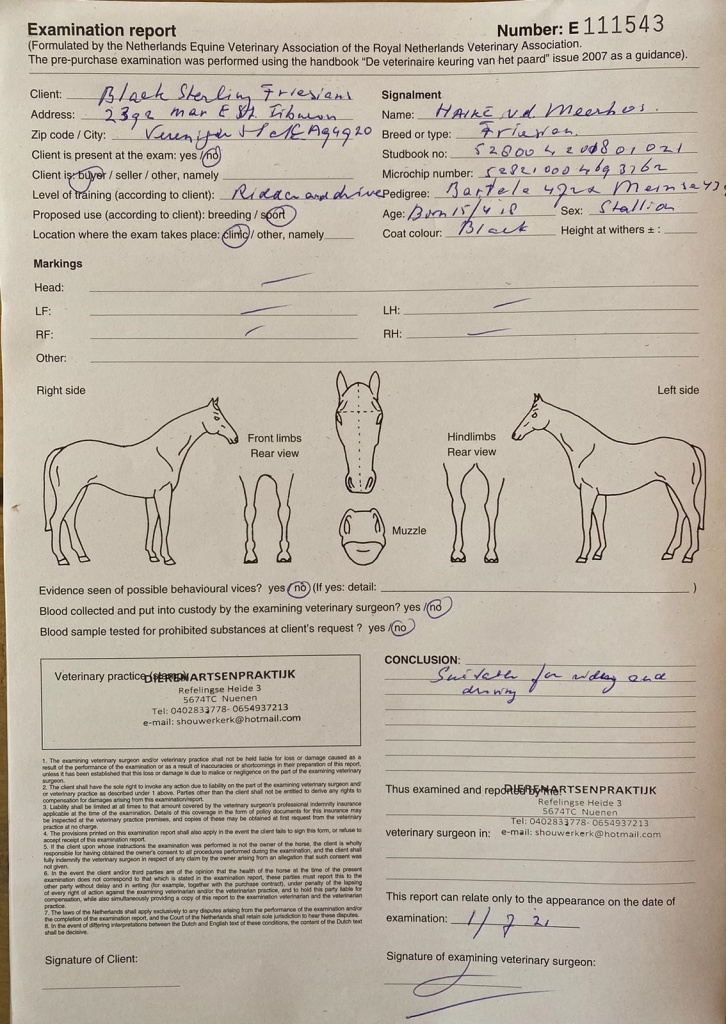 Examination report
Number: E 111543
(Formulated by the Netherlands Equine Veterinary Association of the Royal Netherlands Veterinary Association.
The pre-purchase examination was performed using the handbook "De veterinaire keuring van het paard" issue 2007 as a guidance).
Client: Black Sterling Friesians
Address: 2392 Mar E St.
Zip code / City:
Client is present at the exam: yes / no
Client is: buyer / seller / other, namely
Level of training (according to client): Ridden and drive
Proposed use (according to client): breeding / sport
Location where the exam takes place: clinic / other, namely
Signalment
Name: HAIKE vd Meerhos.
Breed or type: Friesian
Studbook no: 528004201801021
Microchip number: 528210004693762
Pedigree: Bartele 472 Meinse
Age: Born 15/4 18 Sex: Stallion
Coat colour: Black Height at withers ± :
Markings
Head:
LF: LH:
RF: RH:
Other:
Right side
Left side
Front limbs
Rear view
Hindlimbs
Rear view
Muzzle
Evidence seen of possible behavioural vices? yes / no (If yes: detail: )
Blood collected and put into custody by the examining veterinary surgeon? yes / no
Blood sample tested for prohibited substances at client's request ? yes / no
Veterinary practice (stamp):
DIERENARTSENPRAKTIJK
Refelingse Heide 3
5674TC Nuenen
Tel: 0402833778- 0654937213
e-mail: shouwerkerk@hotmail.com
1. The examining veterinary surgeon and/or veterinary practice shall not be held liable for loss or damage caused as a
result of the performance of the examination or as a result of inaccuracies or shortcomings in their preparation of this report,
unless it has been established that this loss or damage is due to malice or negligence on the part of the examining veterinary
surgeon.
2. The client shall have the sole right to invoke any action due to liability on the part of the examining veterinary surgeon and/
or veterinary practice as described under 1 above. Parties other than the client shall not be entitled to derive any rights to
compensation for damages arising from this examination/report.
3. Liability shall be limited at all times to that amount covered by the veterinary surgeon's professional indemnity insurance
applicable at the time of the examination. Details of this coverage in the form of policy documents for this insurance may
be inspected at the veterinary practice premises, and copies of these may be obtained at first request from the veterinary
practice at no charge.
4. The provisions printed on this examination report shall also apply in the event the client fails to sign this form, or refuse to
accept receipt of this examination report.
5. If the client upon whose instructions the examination was performed is not the owner of the horse, the client is wholly
responsible for having obtained the owner's consent to all procedures performed during the examination, and the client shall
fully indemnify the veterinary surgeon in respect of any claim by the owner arising from an allegation that such consent was
not given.
6. In the event the client and/or third parties are of the opinion that the health of the horse at the time of the present
examination does not correspond to that which is stated in the examination report, these parties must report this to the
other party without delay and in writing (for example, together with the purchase contract), under penalty of the lapsing
of every right of action against the examining veterinarian and/or the veterinarian practice, and to hold this party liable for
compensation, while also simultaneously providing a copy of this report to the examination veterinarian and the veterinarian
practice.
7. The laws of the Netherlands shall apply exclusively to any disputes arising from the performance of the examination and/or
the completion of the examination report, and the Court of the Netherlands shall retain sole jurisdiction to hear these disputes.
8. In the event of differing interpretations between the Dutch and English text of these conditions, the content of the Dutch text
shall be decisive.
Signature of Client:
CONCLUSION:
Suitable for riding and
driving
Thus examined and reported by me:
DIERENARTSENPRAKTIJK
Refelingse Heide 3
5674TC Nuenen
Tel: 0402833778- 0654937213
veterinary surgeon in: e-mail: shouwerkerk@hotmail.com
This report can relate only to the appearance on the date of
examination: 1/7 21
Signature of examining veterinary surgeon: